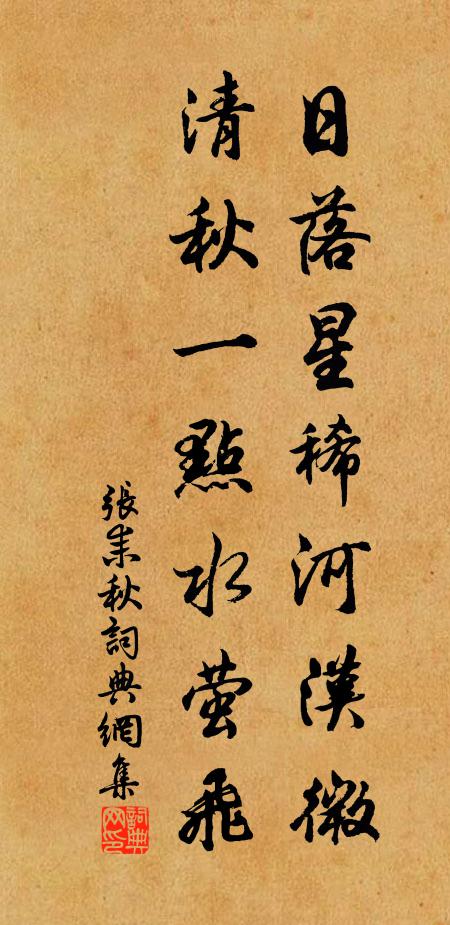 日落星稀河漢微
清秋一點水螢飛
張耒秋詞典網集
詞典網印